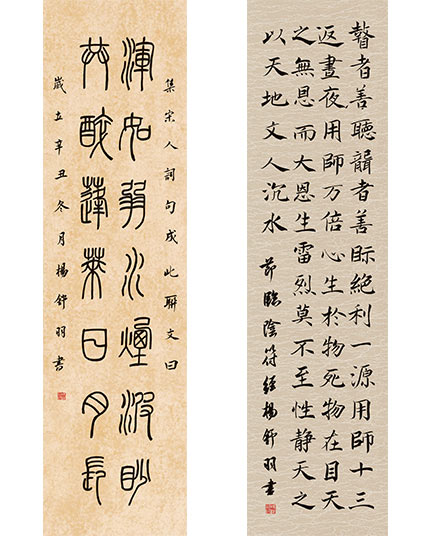 瞽者善聽聾者善眎絕利一源用師十三
返晝夜用師万倍心生於物死物在目天
之無恩而大恩生雷烈莫不至性靜天之
以天地文人沉水 節臨陰符經楊舒羽書
集宋人詞句成此聯文曰
渾如弱水煙波眇
共醉蓬萊日月長
歲在辛丑冬月楊舒羽書